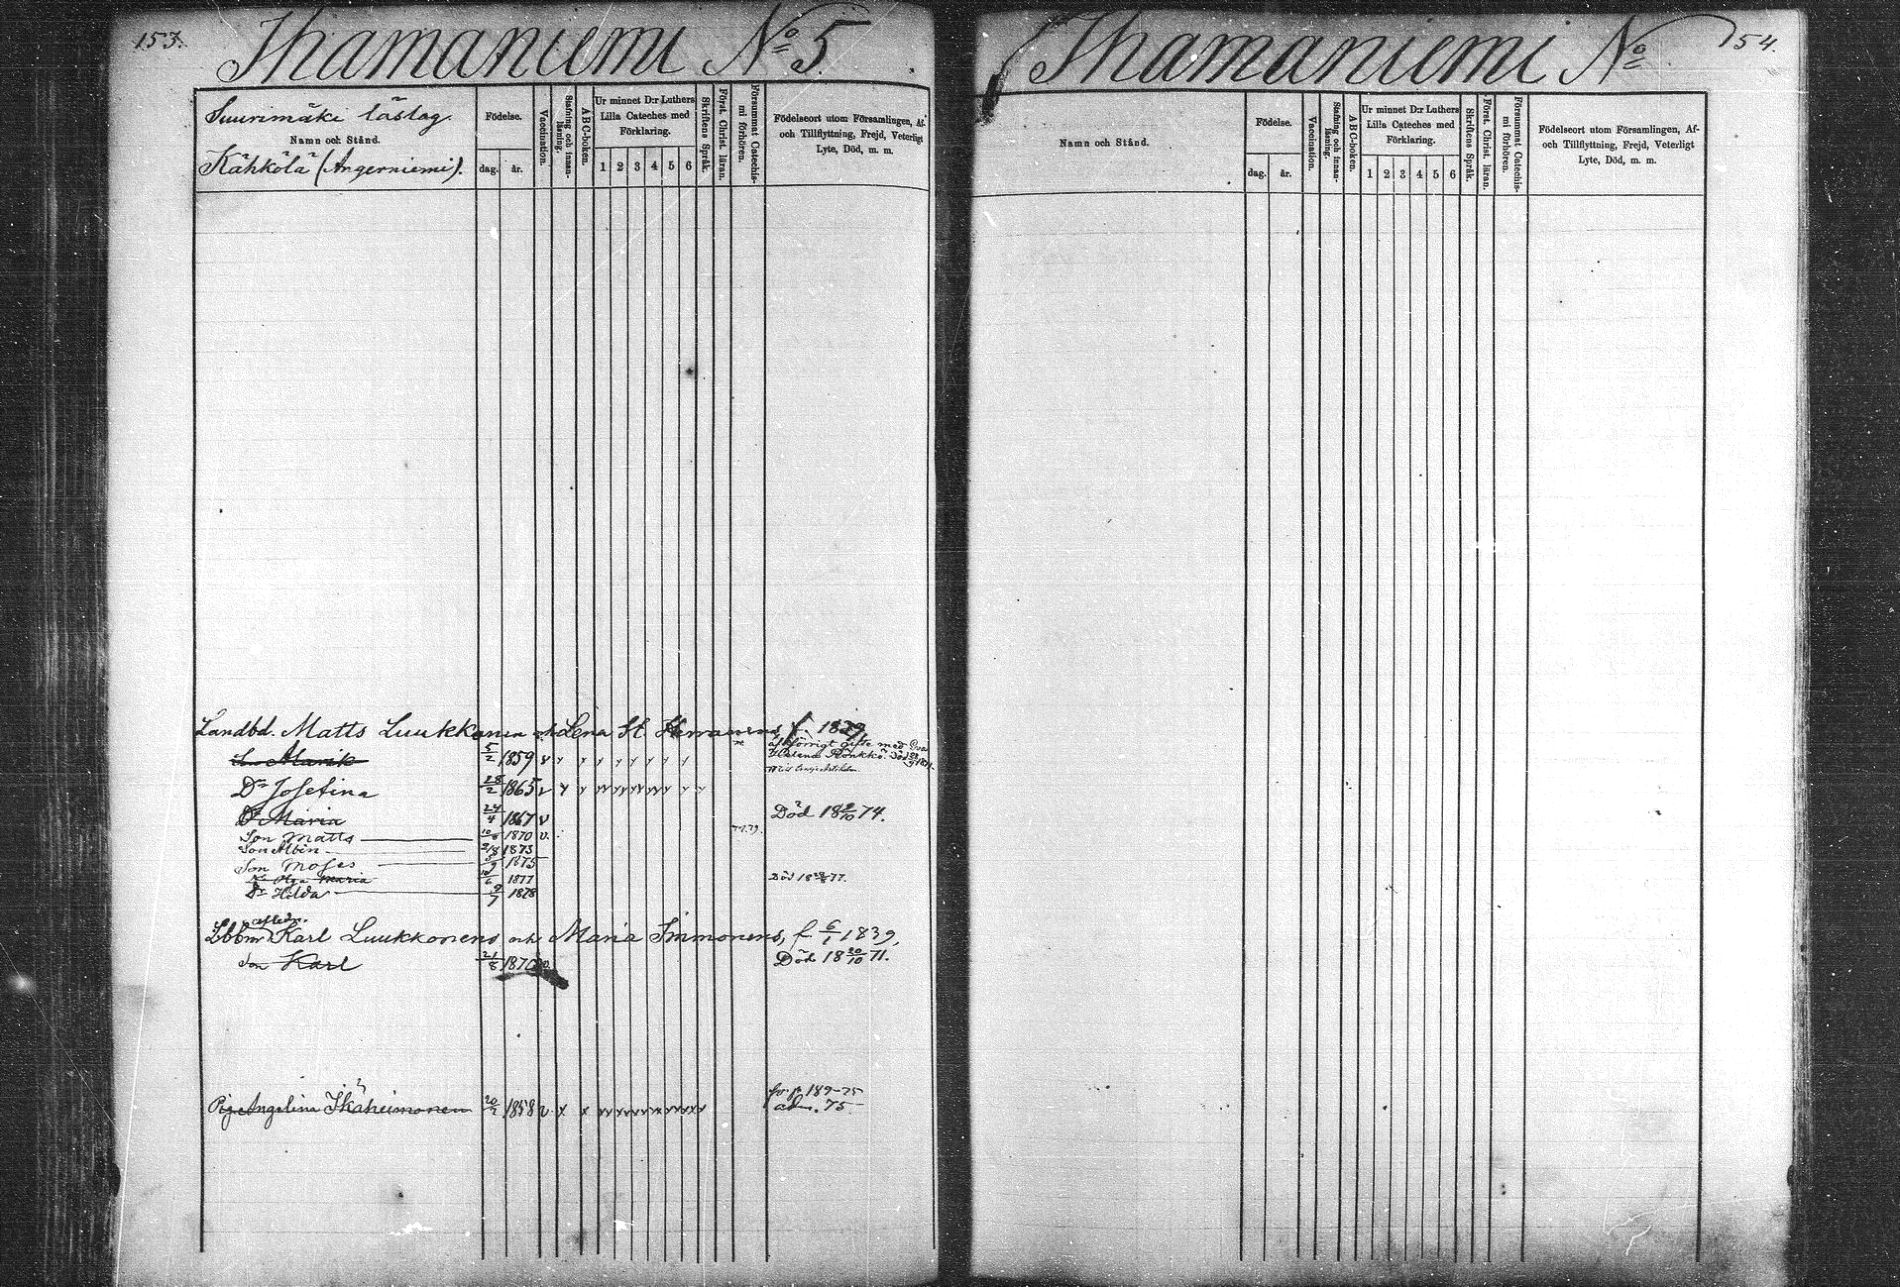 153.
Ihamaniemi No 5
Suurimäki läslag.
Namn och Stånd.
Kähkölä (Angerniemi).
Födelse.
dag. år.
Vaccination.
Stafning och innan-läsning.
A B C-boken.
Ur minnet D:r Luthers
Lilla Cateches med
Förklaring.
1 2 3 4 5 6
Skriftens Språk.
Först. Christ. läran.
Försummat Catechis-mi förhören.
Födelseort utom Församlingen, Af-
och Tillflyttning, Frejd, Veterligt
Lyte, Död, m. m.
Landbd. Matts Luukkanen och Lena St. f. 1829,
5/2 1859 v
Helena Rönkkö.
Dr Josefina 28/2 1865 v
Dr Maria 24/4 1867 v Död 18 2/10 74.
Son Matts 1870 v.
Son Albin 1873
Son Moses 1875
Dr Olga Maria 1877 Död 77.
Dr Hilda 1878
Karl Luukkonens och Maria Immonens, f. 6/1 1839,
Son Karl 21/8 1870 Död 18 20/10 71.
Pig Angelina Ikäheimonen 20/2 1858 v
75
154.
Ihamaniemi No
Namn och Stånd.
Födelse.
dag. år.
Vaccination.
Stafning och innan-läsning.
A B C-boken.
Ur minnet D:r Luthers
Lilla Cateches med
Förklaring.
1 2 3 4 5 6
Skriftens Språk.
Först. Christ. läran.
Försummat Catechis-mi förhören.
Födelseort utom Församlingen, Af-
och Tillflyttning, Frejd, Veterligt
Lyte, Död, m. m.